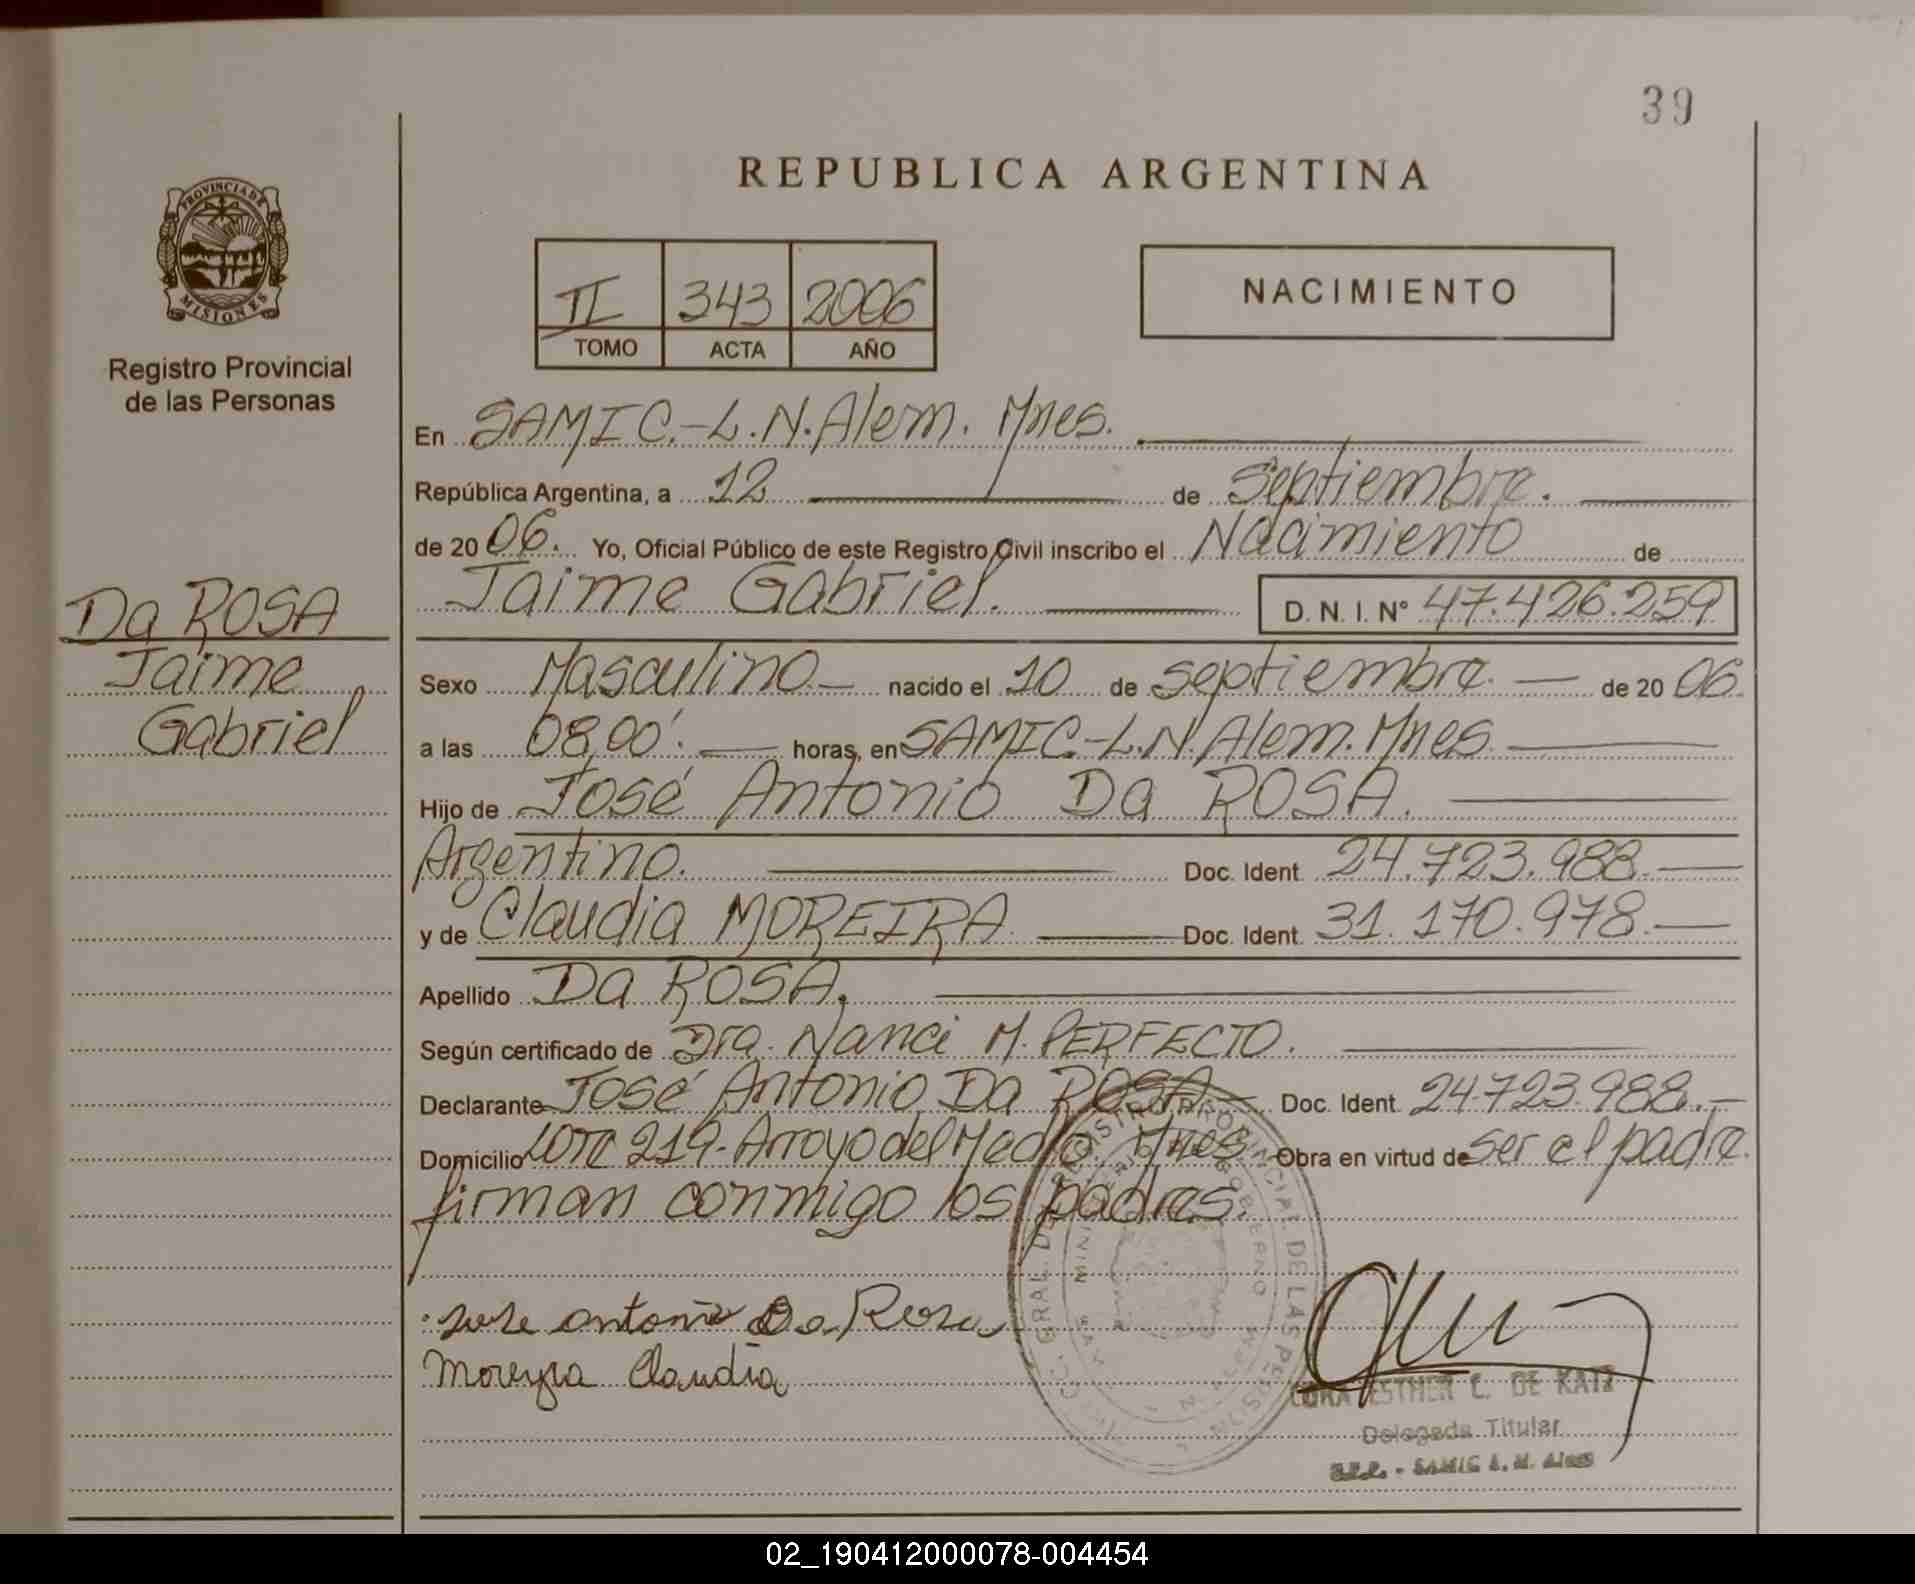 39
REPUBLICA ARGENTINA
PROVINCIA DE
MISIONES
Registro Provincial
de las Personas
II 343 2006
TOMO ACTA AÑO
NACIMIENTO
En SAMIC.-L.N.Alem. Mnes.
República Argentina, a 12 de Septiembre.
de 20 06. Yo, Oficial Público de este Registro Civil inscribo el Nacimiento de
Jaime Gabriel. D. N. I. N° 47.426.259
Da ROSA
Jaime
Gabriel
Sexo Masculino.- nacido el 10 de septiembre. de 20 06.
a las 08,00'. horas, en SAMIC.-L.N.Alem. Mnes.
Hijo de José Antonio Da ROSA.
Argentino. Doc. Ident 24.723.988.
y de Claudia MOREIRA Doc. Ident. 31.170.978.
Apellido Da ROSA.
Según certificado de Dra. Nanci M. PERFECTO.
Declarante José Antonio Da ROSA Doc. Ident. 24.723.988.
Domicilio Lote 219-Arroyo del Medio. Mnes Obra en virtud de ser el padre.
firman conmigo los padres.
Jose antonio Da Rosa
Moreyra Claudia
CORA ESTHER C. DE KATZ
Delegada Titular
02_190412000078-004454